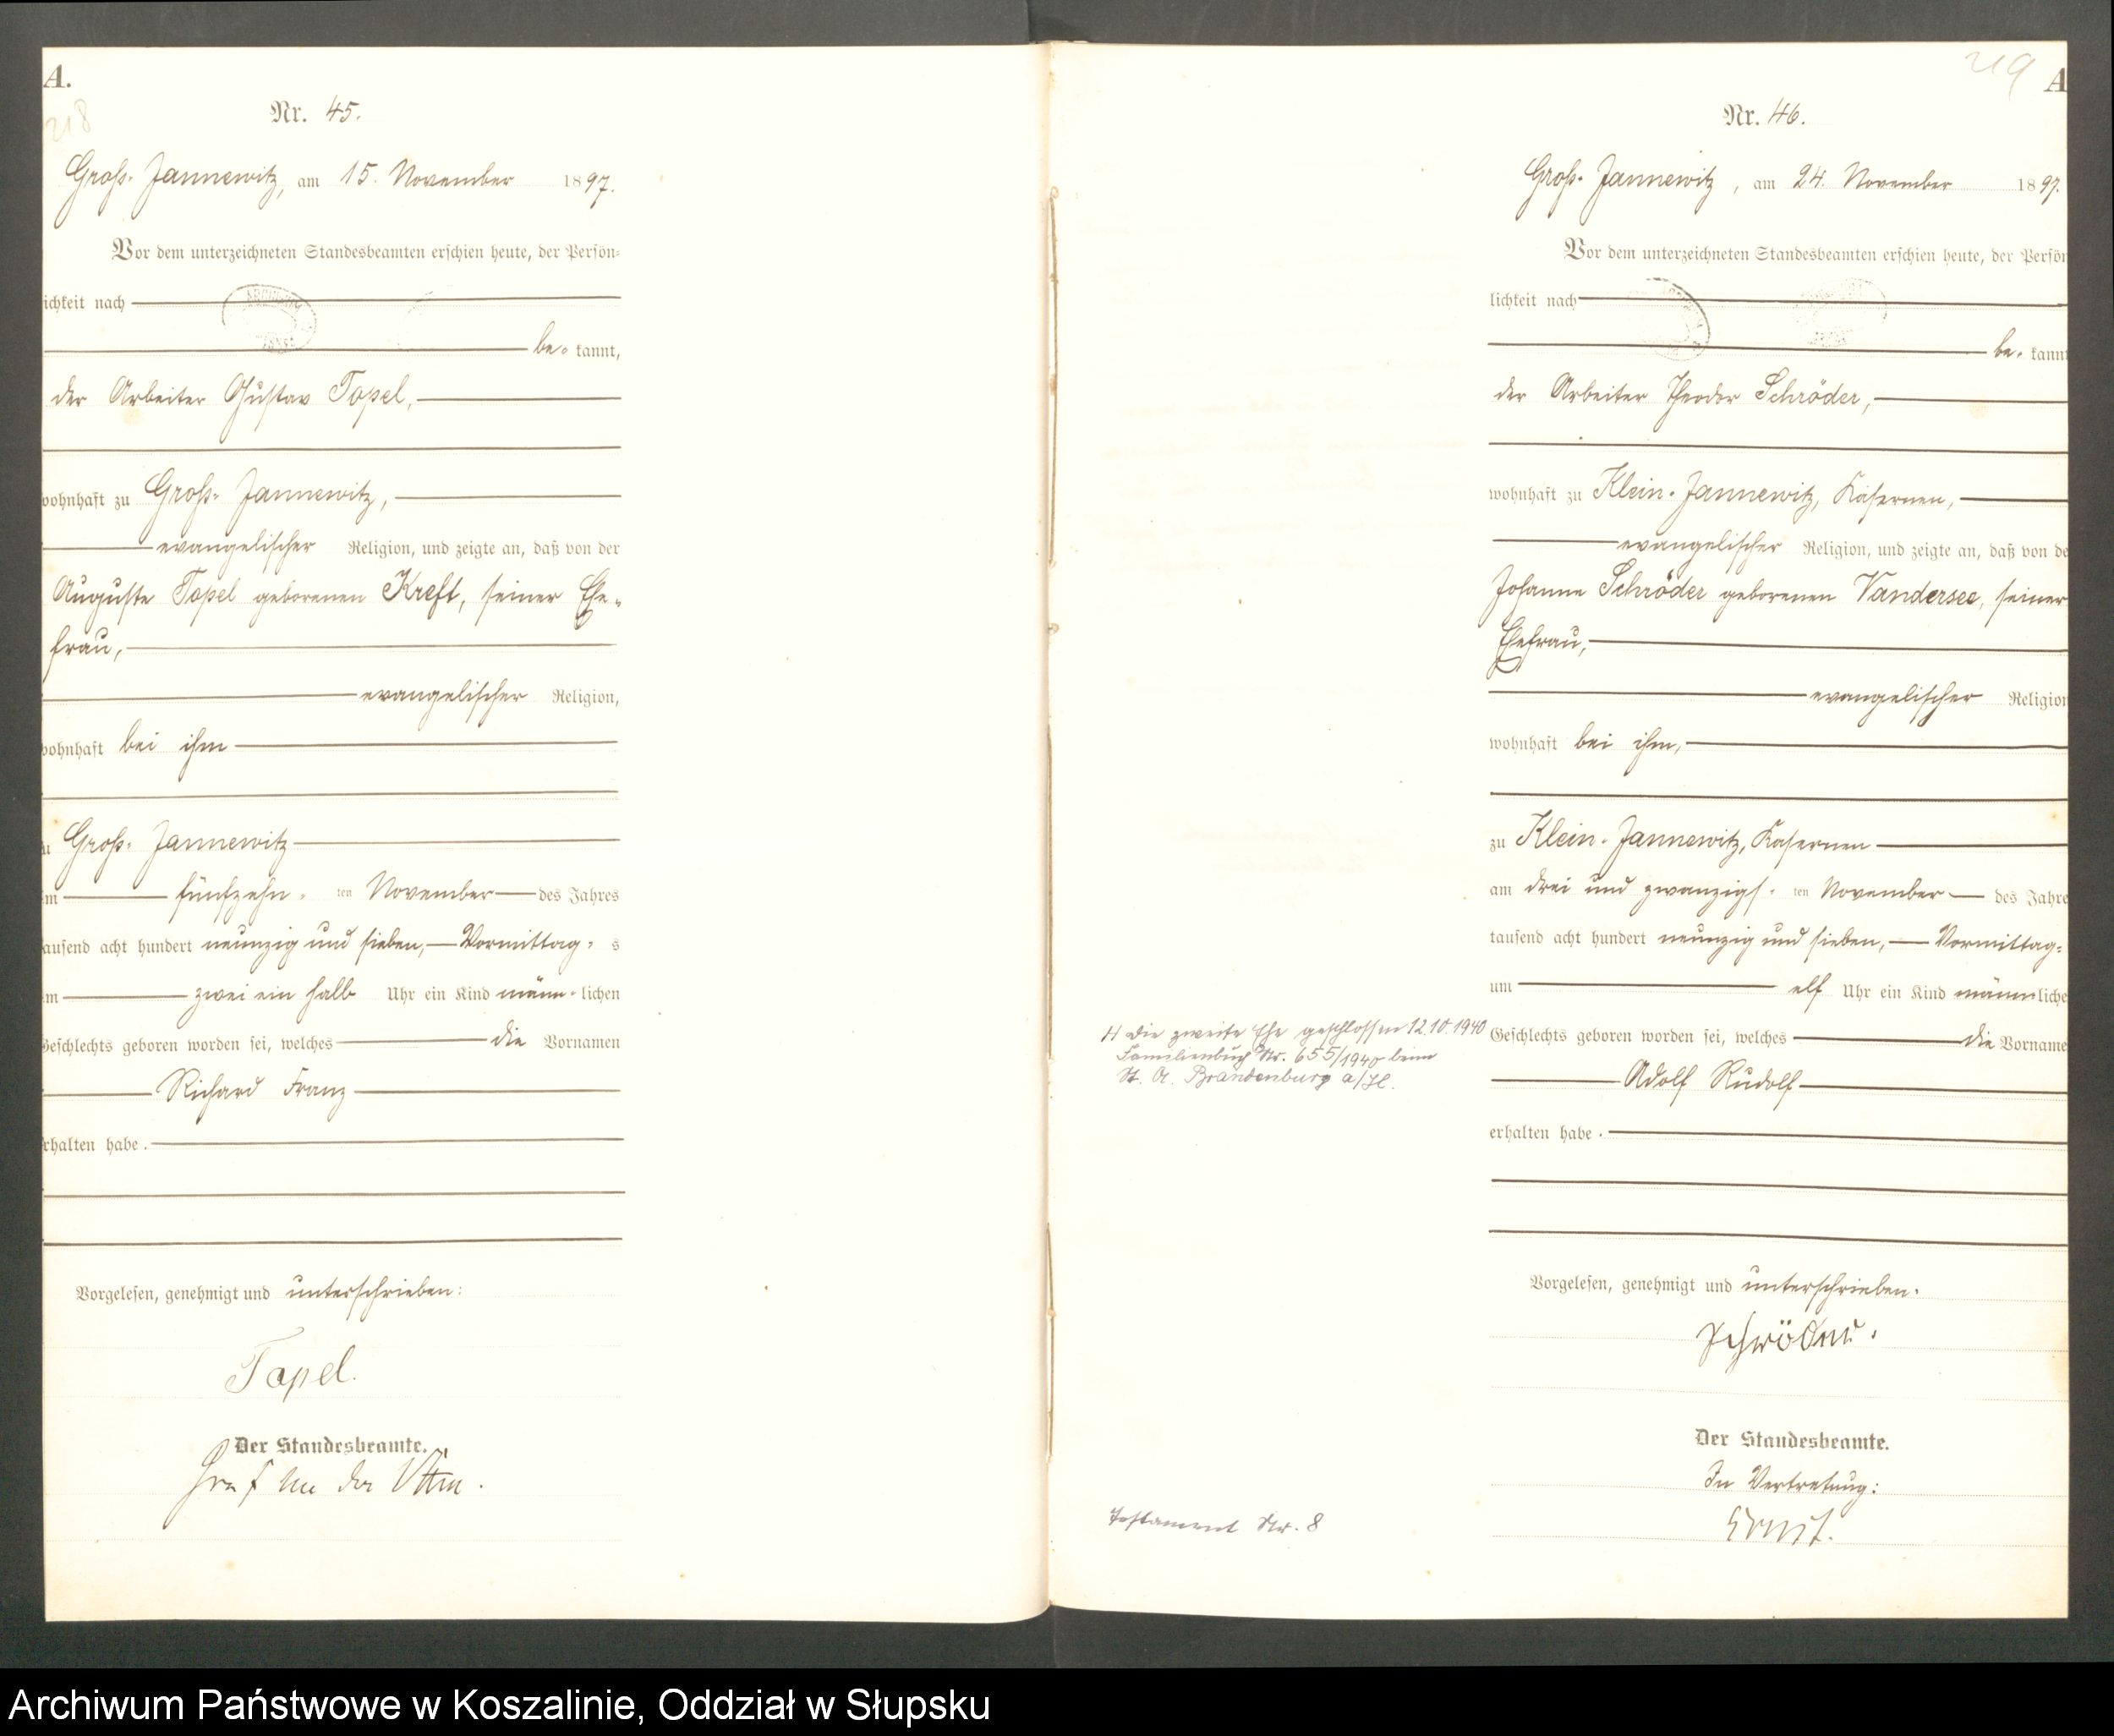 A.
218
Nr. 45.
Groß-Jannewitz, am 15. November 1897.
Vor dem unterzeichneten Standesbeamten erschien heute, der Persön-
ichkeit nach
be- kannt,
der Arbeiter Gustav Topel,
wohnhaft zu Groß-Jannewitz,
evangelischer Religion, und zeigte an, daß von der
Auguste Topel geborenen Kreft, seiner Ehe-
frau,
evangelischer Religion,
wohnhaft bei ihm
zu Groß-Jannewitz
am fünfzehn- ten November des Jahres
tausend acht hundert neunzig und sieben, Vormittag- s
um zwei ein halb Uhr ein Kind männ- lichen
Geschlechts geboren worden sei, welches die Vornamen
Richard Franz
erhalten habe.
Vorgelesen, genehmigt und unterschrieben:
Topel.
Der Standesbeamte.
Graf
219
A
Nr. 46.
Groß-Jannewitz, am 24. November 1897.
Vor dem unterzeichneten Standesbeamten erschien heute, der Persön
lichkeit nach
be- kannt
der Arbeiter Theodor Schröder,
wohnhaft zu Klein-Jannewitz, Kasernen,
evangelischer Religion, und zeigte an, daß von de
Johanne Schröder geborenen Vandersee, seiner
Ehefrau,
evangelischer Religion
wohnhaft bei ihm,
zu Klein-Jannewitz, Kasernen
am drei und zwanzigs- ten November des Jahre
tausend acht hundert neunzig und sieben, Vormittag-
um elf Uhr ein Kind männliche
Geschlechts geboren worden sei, welches die Vorname
Adolf Rudolf
erhalten habe.
Vorgelesen, genehmigt und unterschrieben.
Schröder.
Der Standesbeamte.
In Vertretung:
Ernst.
die zweite Ehe geschlossen 12.10.1940
Familienbuch Nr. 655/1940 beim
St. A. Brandenburg a/H.
Testament Nr. 8
Archiwum Państwowe w Koszalinie, Oddział w Słupsku